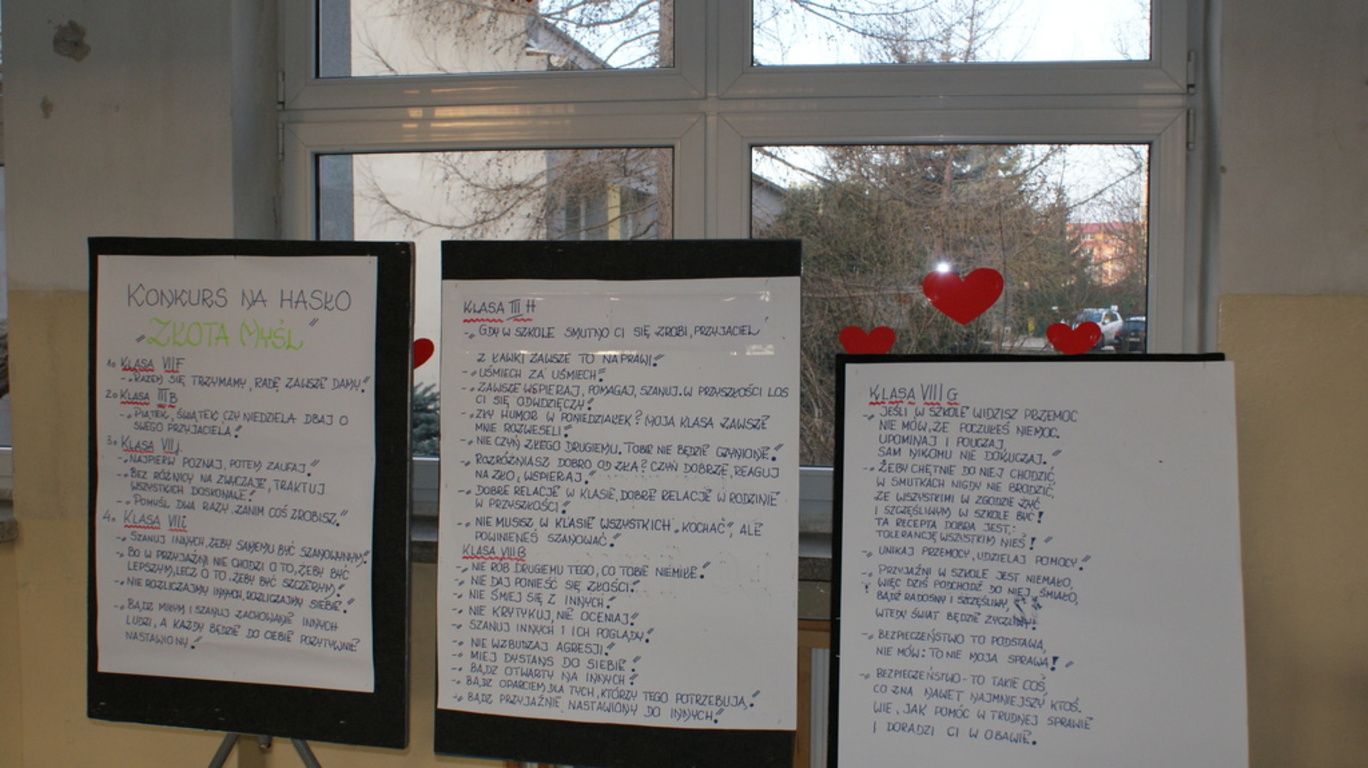 KONKURS NA HASŁO
"ZŁOTA MYŚL"
1. KLASA VII F
-„RAZEM SIĘ TRZYMAMY, RADĘ ZAWSZE DAMY."
2. KLASA III B
-„PIĄTEK, ŚWIĄTEK CZY NIEDZIELA DBAJ O
SWEGO PRZYJACIELA."
3. KLASA VII j
-„NAJPIERW POZNAJ, POTEM ZAUFAJ."
-„BEZ RÓŻNICY NA ZWYCZAJE, TRAKTUJ
WSZYSTKICH DOSKONALE."
-„POMYŚL DWA RAZY ZANIM COŚ ZROBISZ."
4. KLASA VII i
-„SZANUJ INNYCH, ŻEBY SAMEMU BYĆ SZANOWANYM."
-„BO W PRZYJAŹNI NIE CHODZI O TO, ŻEBY BYĆ
LEPSZYM, LECZ O TO, ŻEBY BYĆ SZCZERYM."
-„NIE ROZLICZAJMY INNYCH, ROZLICZAJMY SIEBIE."
-„BĄDŹ MIŁYM I SZANUJ ZACHOWANIE INNYCH
LUDZI, A KAŻDY BĘDZIE DO CIEBIE POZYTYWNIE
NASTAWIONY."
KLASA III H
-„GDY W SZKOLE SMUTNO CI SIĘ ZROBI, PRZYJACIEL
Z ŁAWKI ZAWSZE TO NAPRAWI."
-„UŚMIECH ZA UŚMIECH."
-„ZAWSZE WSPIERAJ, POMAGAJ, SZANUJ. W PRZYSZŁOŚCI LOS
CI SIĘ ODWDZIĘCZY."
-„ZŁY HUMOR W PONIEDZIAŁEK? MOJA KLASA ZAWSZE
MNIE ROZWESELI."
-„NIE CZYŃ ZŁEGO DRUGIEMU. TOBIE NIE BĘDZIE CZYNIONE."
-„ROZRÓŻNIASZ DOBRO OD ZŁA? CZYŃ DOBRZE, REAGUJ
NA ZŁO, WSPIERAJ."
-„DOBRE RELACJE W KLASIE, DOBRE RELACJE W RODZINIE
W PRZYSZŁOŚCI."
-„NIE MUSISZ W KLASIE WSZYSTKICH „KOCHAĆ", ALE
POWINIENEŚ SZANOWAĆ."
KLASA VIII B
-„NIE RÓB DRUGIEMU TEGO, CO TOBIE NIEMIŁE."
-„NIE DAJ PONIEŚĆ SIĘ ZŁOŚCI."
-„NIE ŚMIEJ SIĘ Z INNYCH."
-„NIE KRYTYKUJ, NIE OCENIAJ."
-„SZANUJ INNYCH I ICH POGLĄDY."
-„NIE WZBUDZAJ AGRESJI."
-„MIEJ DYSTANS DO SIEBIE."
-„BĄDŹ OTWARTY NA INNYCH."
-„BĄDŹ OPARCIEM DLA TYCH, KTÓRZY TEGO POTRZEBUJĄ."
-„BĄDŹ PRZYJAŹNIE NASTAWIONY DO INNYCH."
KLASA VIII G
-„JEŚLI W SZKOLE WIDZISZ PRZEMOC
NIE MÓW, ŻE POCZUŁEŚ NIEMOC.
UPOMINAJ I POUCZAJ,
SAM NIKOMU NIE DOKUCZAJ."
-„ŻEBY CHĘTNIE DO NIEJ CHODZIĆ,
W SMUTKACH NIGDY NIE BRODZIĆ,
ZE WSZYSTKIMI W ZGODZIE ŻYĆ
I SZCZĘŚLIWYM W SZKOLE BYĆ!
TA RECEPTA DOBRA JEST:
TOLERANCJĘ WSZYSTKIM NIEŚ!"
-„UNIKAJ PRZEMOCY, UDZIELAJ POMOCY."
-„PRZYJAŹNI W SZKOLE JEST NIEMAŁO,
WIĘC DZIŚ PODCHODŹ DO NIEJ ŚMIAŁO,
BĄDŹ RADOSNY I SZCZĘŚLIWY,
WTEDY ŚWIAT BĘDZIE ŻYCZLIWY."
-„BEZPIECZEŃSTWO TO PODSTAWA,
NIE MÓW: TO NIE MOJA SPRAWA!"
-„BEZPIECZEŃSTWO - TO TAKIE COŚ,
CO ZNA NAWET NAJMNIEJSZY KTOŚ.
WIE, JAK POMÓC W TRUDNEJ SPRAWIE
I DORADZI CI W OBAWIE.